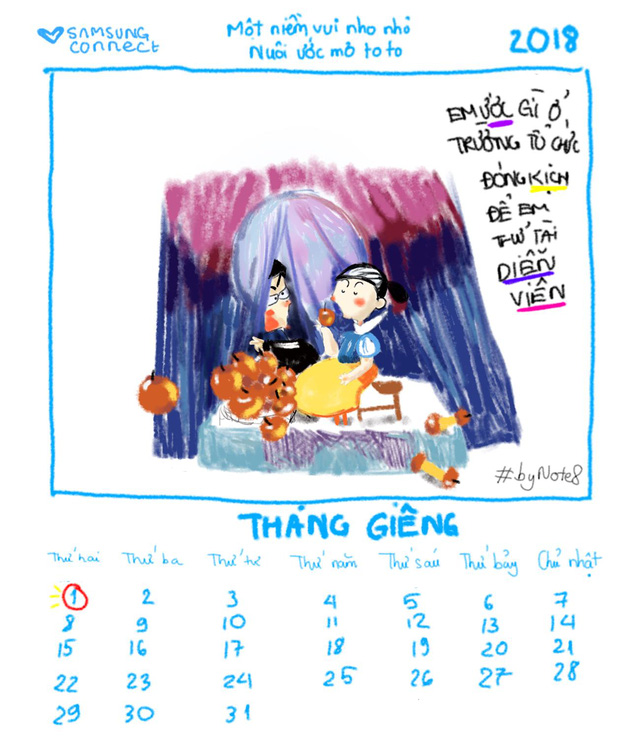 SAMSUNG
connect
Một niềm vui nho nhỏ
Nuôi ước mơ to to
2018
EM ƯỚC GÌ Ở
TRƯỜNG TỔ CHỨC
ĐÓNG KỊCH
ĐỂ EM
THỬ TÀI
DIỄN
VIÊN
#byNote8
THÁNG GIÊNG
Thứ hai Thứ ba Thứ tư Thứ năm Thứ sáu Thứ bảy Chủ nhật
1 2 3 4 5 6 7
8 9 10 11 12 13 14
15 16 17 18 19 20 21
22 23 24 25 26 27 28
29 30 31